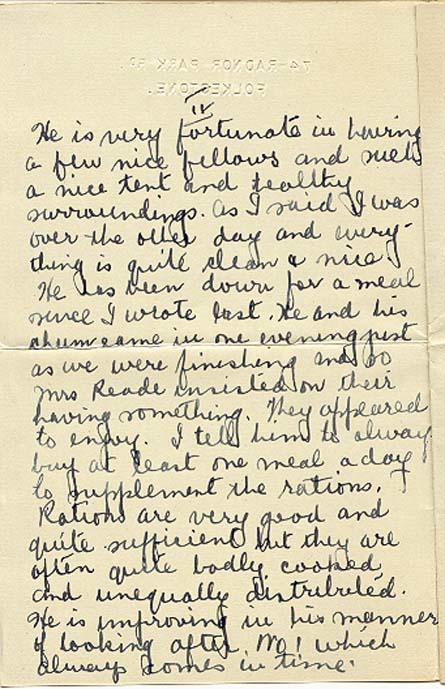 74-RADNOR PARK RD.
FOLKESTONE.
IV
He is very fortunate in having
a few nice fellows and such
a nice tent and healthy
surroundings. As I said I was
over the other day and every-
thing is quite clean & nice.
He has been down for a meal
since I wrote last. He and his
chum came in one evening just
as we were finishing and so
Mrs Reade insisted on their
having something. They appeared
to enjoy. I tell him to always
buy at least one meal a day
to supplement the rations.
Rations are very good and
quite sufficient but they are
often quite badly cooked
and unequally distributed.
He is improving in his manner
of looking after No 1 which
always comes in time.